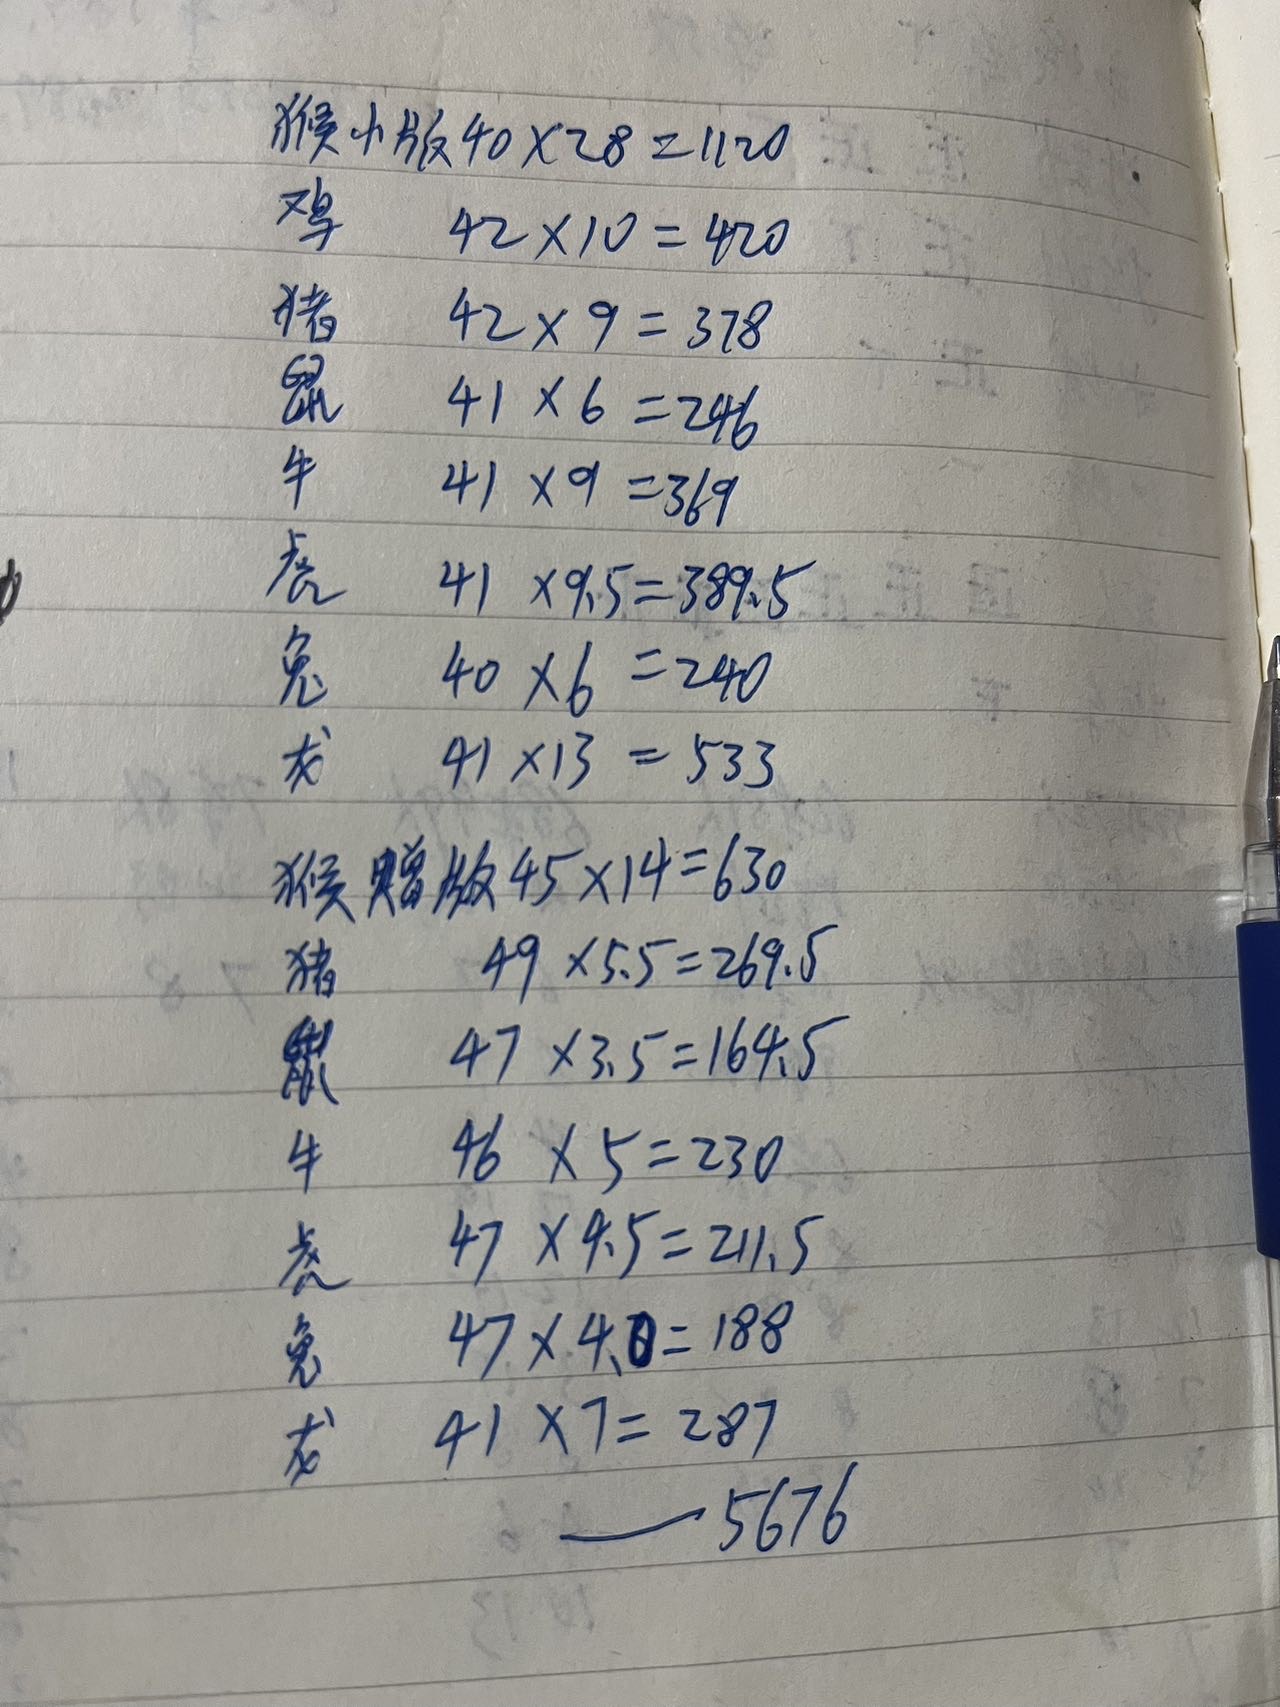 猴小版40×28=1120
鸡 42×10=420
猪 42×9=378
鼠 41×6=246
牛 41×9=369
虎 41×9.5=389.5
兔 40×6=240
龙 41×13=533
猴赠版45×14=630
猪 49×5.5=269.5
鼠 47×3.5=164.5
牛 46×5=230
虎 47×4.5=211.5
兔 47×4.0=188
龙 41×7=287
—5676